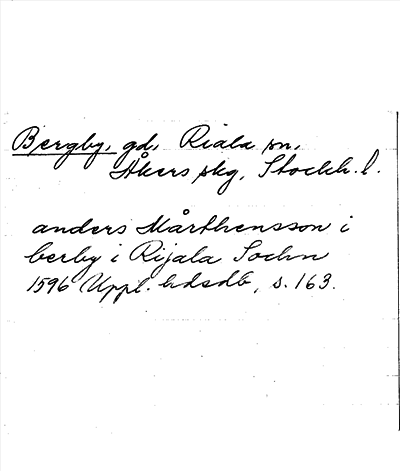 Bergby, gd, Riala sn,
Åkers skg, Stockh. l.
anders Mårthensson i
berby i Rijala Sochn
1596 Uppl. hdsdb, s. 163.